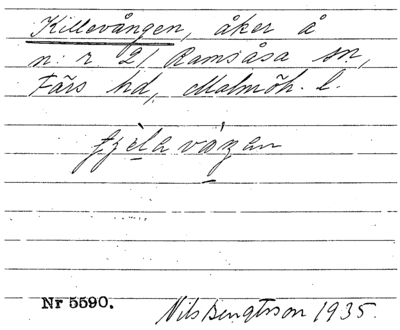 Killevången, åker å
n:r 21 Ramsåsa sn,
Färs hd, Malmöh. l.
Nr 5590.
Nils Bengtsson 1935.